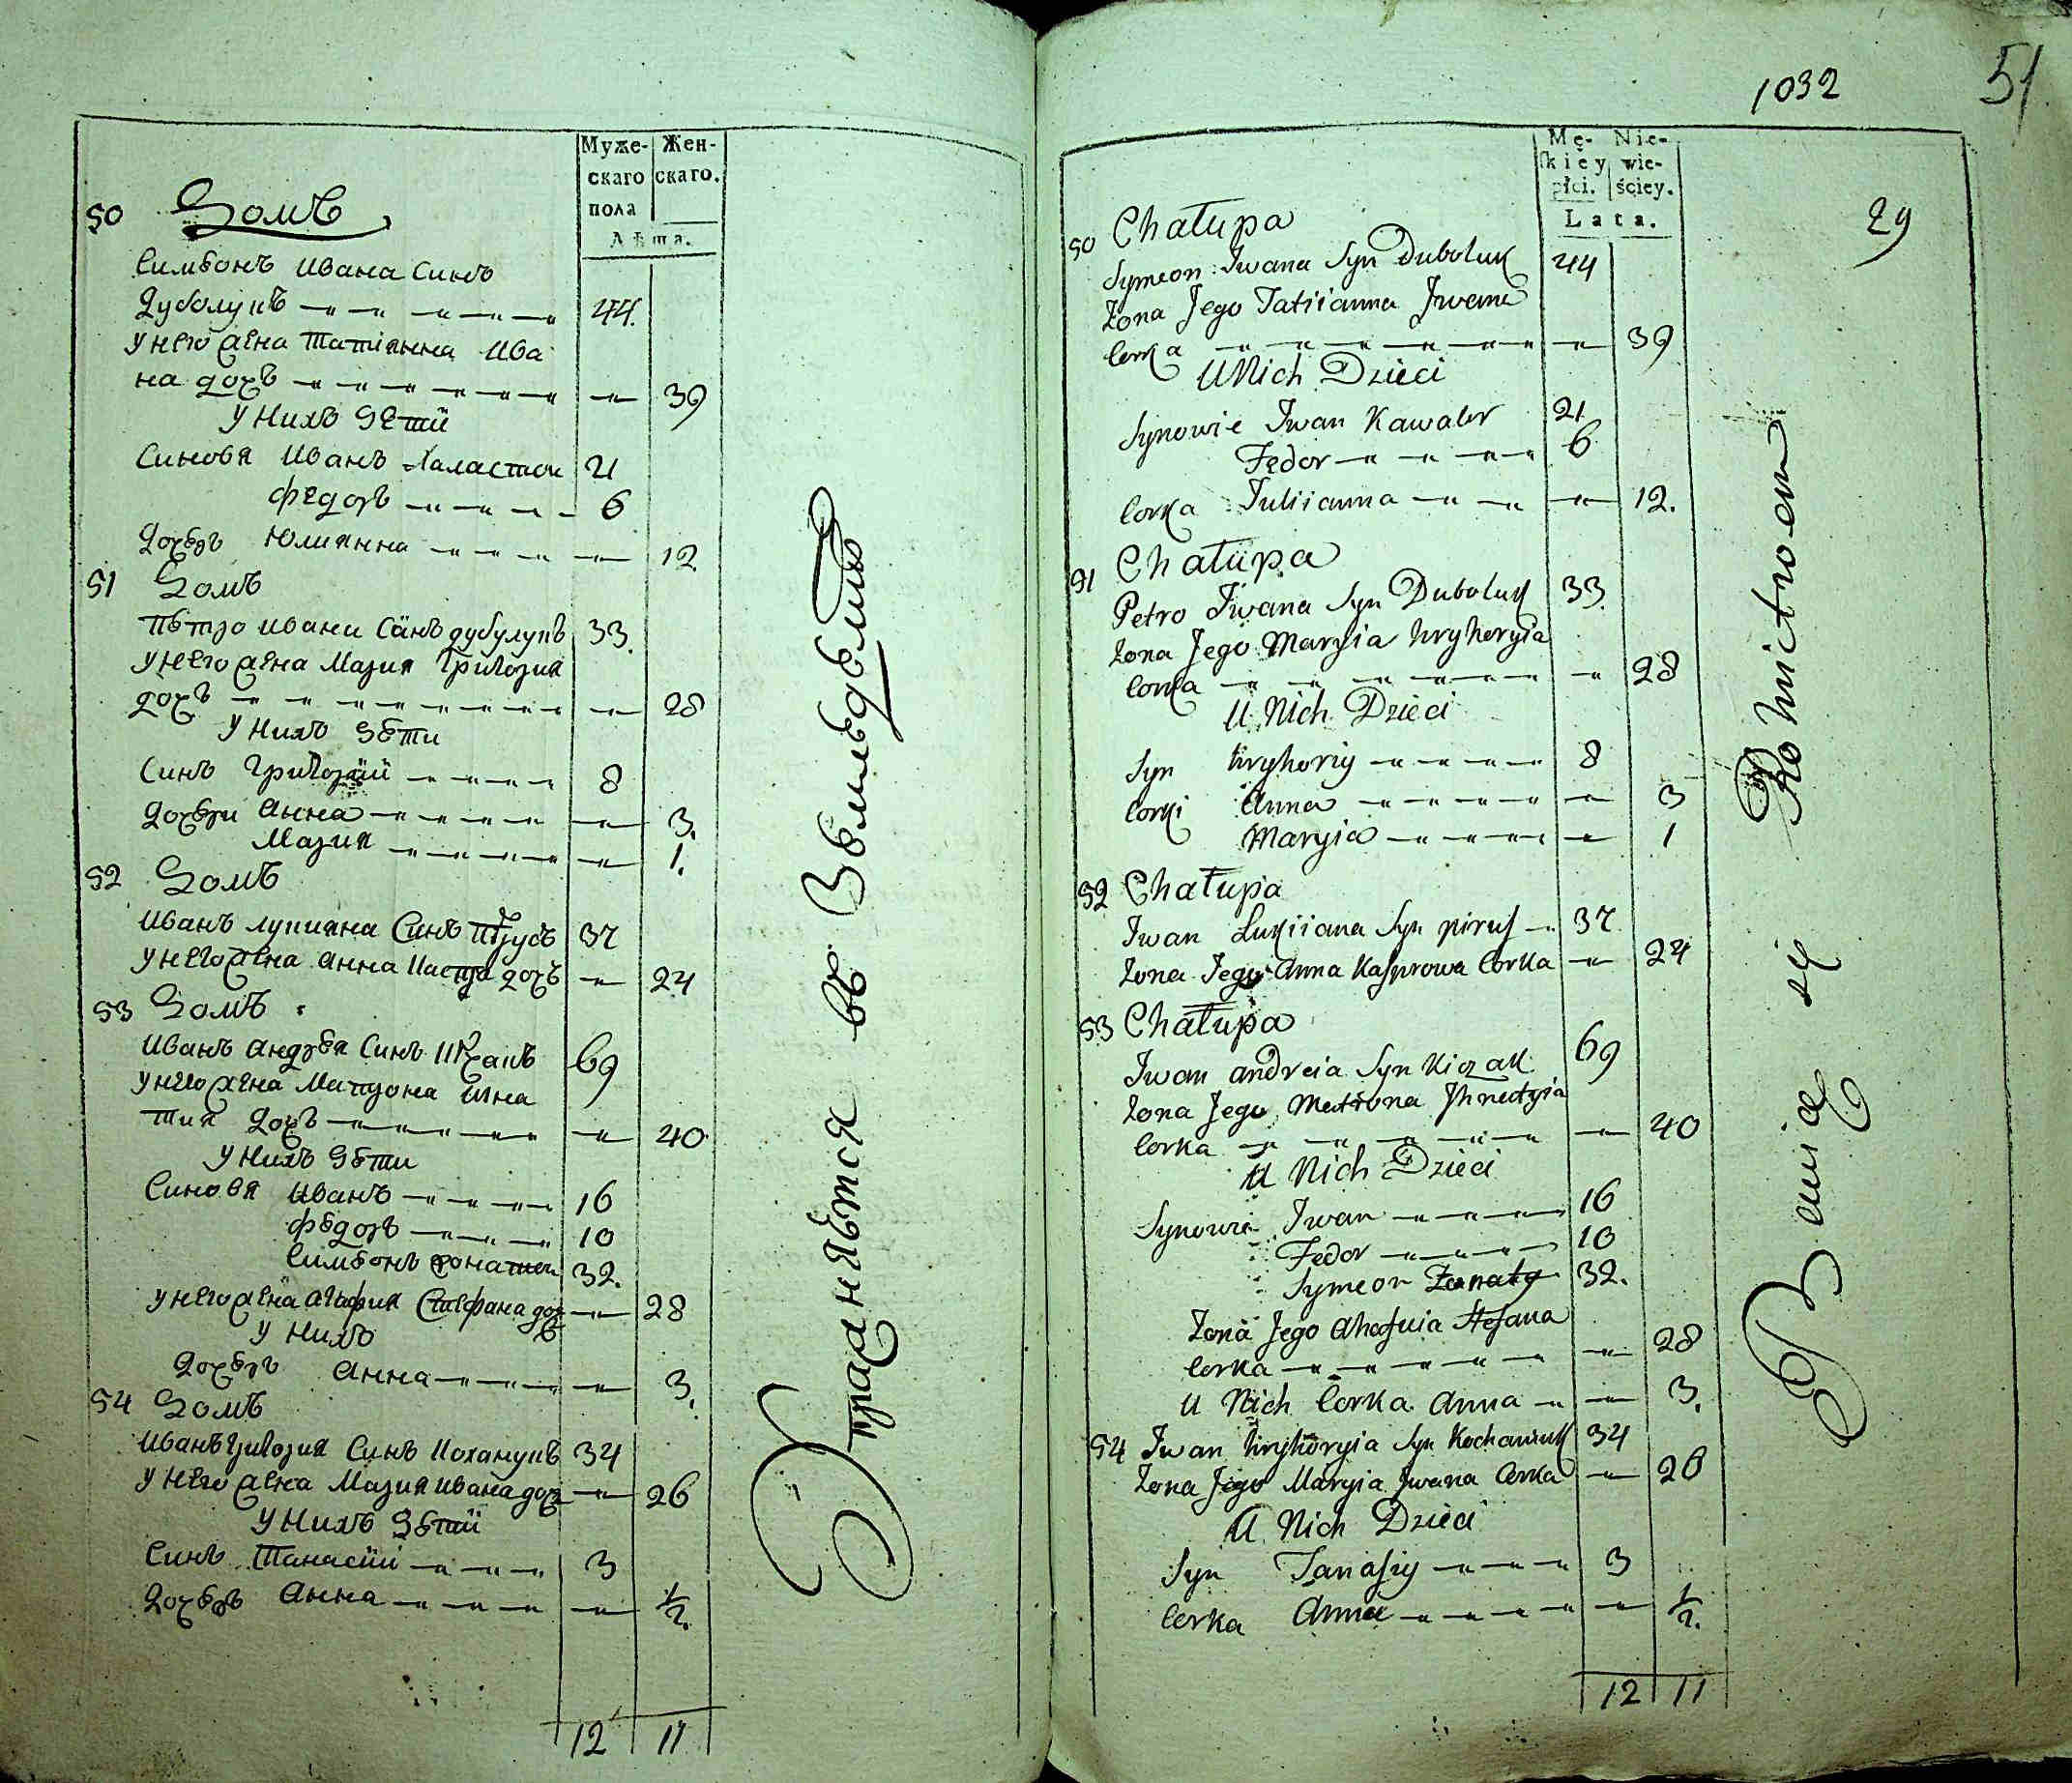 Муже- Жен-
скаго скаго.
пола
Лѣта.
50 Домъ
Симеонъ Ивана Синъ
Дуболукъ 44.
У него жена Татіанна Ива
на дочъ 39
У Нихъ Дети
Синовя Иванъ Халастои 21
Федоръ 6
Дочеръ Юлианна 12
51 Домъ
Петро Ивана Синъ Дубулукъ 33.
У него жена Мария Григория
дочъ 28
У Нихъ Дети
Синъ Григорий 8
Дочери Анна 3.
Мария 1.
52 Домъ
Иванъ Лукияна Синъ 37
У него жена Анна дочъ 24
53 Домъ
Иванъ Андрея Синъ 69
У него жена Матрона Игна
тия дочъ 40
У Нихъ Дети
Синовя Иванъ 16
Федоръ 10
Симеонъ Жонатои 32.
У него жена Агафия Стефана доч 28
У Нихъ
Дочеръ Анна 3.
54 Домъ
Иванъ Григория Синъ Коханукъ 34
У него жена Мария Ивана доч 26
У Нихъ Дети
Синъ Танасий 3
Дочеръ Анна 1/2.
12 11
Упражняѣтся въ Земледѣлию
1032
51
29
Mę- Nie-
skiey wie-
płci. ściey.
Lata.
50 Chałupa
Symeon Iwana Syn Duboluk 44
Żona Jego Tatiianna Iwana
Corka 39
U Nich Dzieci
Synowie Iwan Kawaler 21
Fedor 6
Corka Juliianna 12.
51 Chałupa
Petro Iwana Syn Duboluk 33.
Żona Jego Maryia Hryhoryia
Corka 28
U Nich Dzieci
Syn Hryhoriy 8
Corki Anna 3
Maryia 1
52 Chałupa
Iwan Łukiiana Syn 37
Żona Jego Anna Kasprowa Corka 24
53 Chałupa
Iwan Andreia Syn Kiczak 69
Żona Jego Matrona Ihnatyia
Corka 40
U Nich Dzieci
Synowie Iwan 16
Fedor 10
Symeon Żonaty 32.
Żona Jego Ahafiia Stefana
Corka 28
U Nich Corka Anna 3.
54 Iwan Hryhoryia Syn Kochaniuk 34
Żona Jego Maryia Iwana Corka 26
U Nich Dzieci
Syn Tanasiy 3
Corka Anna 1/2.
12 11
Bawią się Rolnictwem